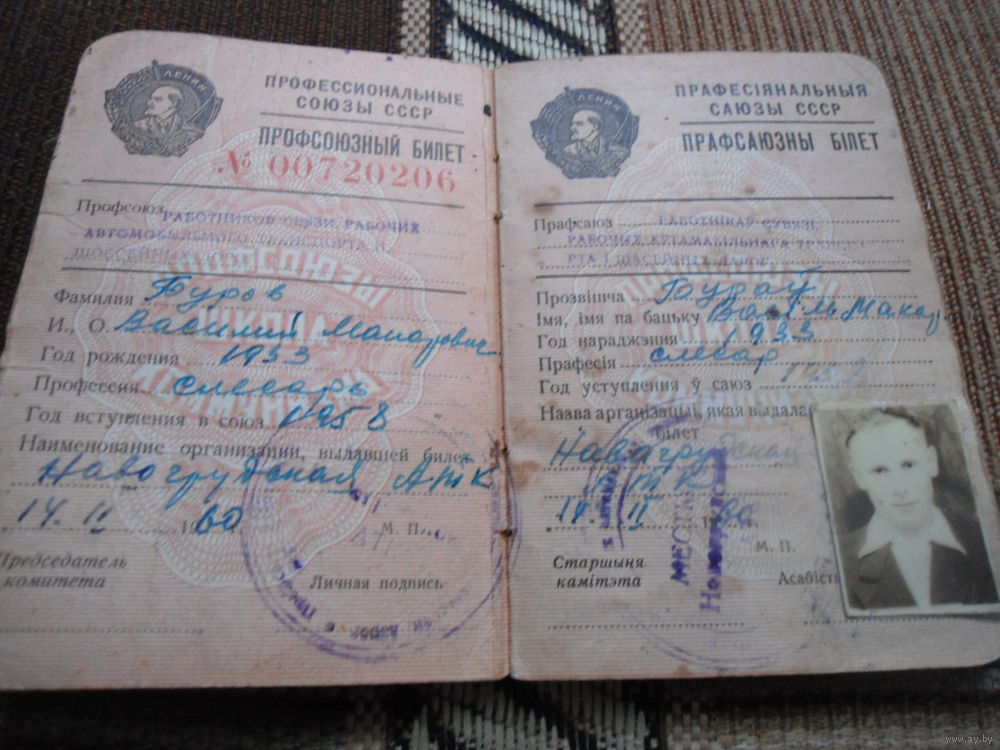 ЛЕНИН
ПРОФЕССИОНАЛЬНЫЕ
СОЮЗЫ СССР
ПРОФСОЮЗНЫЙ БИЛЕТ
№ 00720206
Профсоюз РАБОТНИКОВ СВЯЗИ, РАБОЧИХ
АВТОМОБИЛЬНОГО ТРАНСПОРТА И
ШОССЕЙНЫХ ДОРОГ
Фамилия Буров
И., О. Василий Макарович
Год рождения 1933
Профессия слесарь
Год вступления в союз 1958
Наименование организации, выдавшей билет
Навогрудская АТК
14. II 1960
М. П.
Председатель
комитета
Личная подпись
ЛЕНИН
ПРАФЕСІЯНАЛЬНЫЯ
САЮЗЫ СССР
ПРАФСАЮЗНЫ БІЛЕТ
Прафсаюз РАБОТНІКАЎ СУВЯЗІ,
РАБОЧЫХ АЎТАМАБІЛЬНАГА ТРАНСПА-
РТА І ШАСЕЙНЫХ ДАРОГ
Прозвішча Бураў
Імя, імя па бацьку Васіль Макар
Год нараджэння 1933
Прафесія слесар
Год уступлення ў саюз
Назва арганізацыі, якая выдала
білет
Навагрудская
АТК
14. II 1960
М. П.
Старшыня
камітэта
Асабіс
www.ay.by